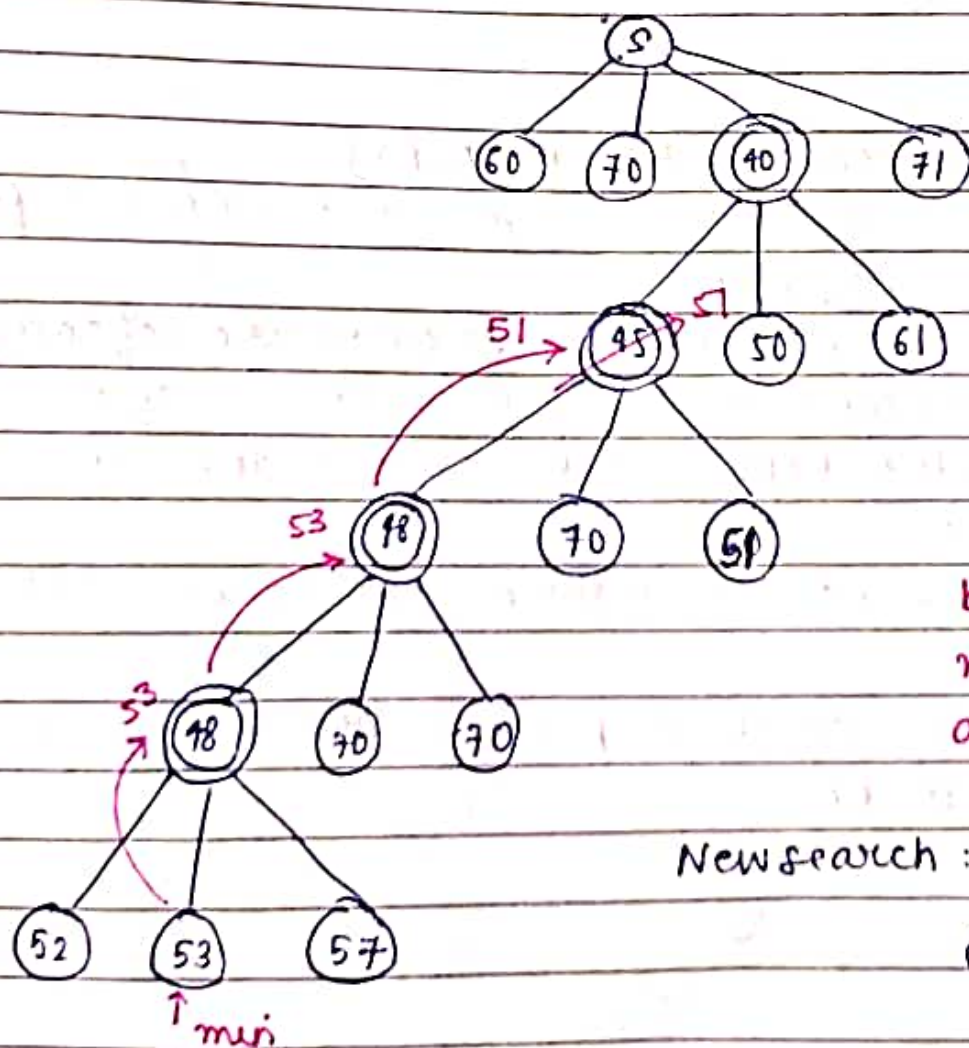 S
60 70 40 71
51 45 51 50 61
53 48 70 51
53 48 70 70
Newsearch :
52 53 57
↑ min